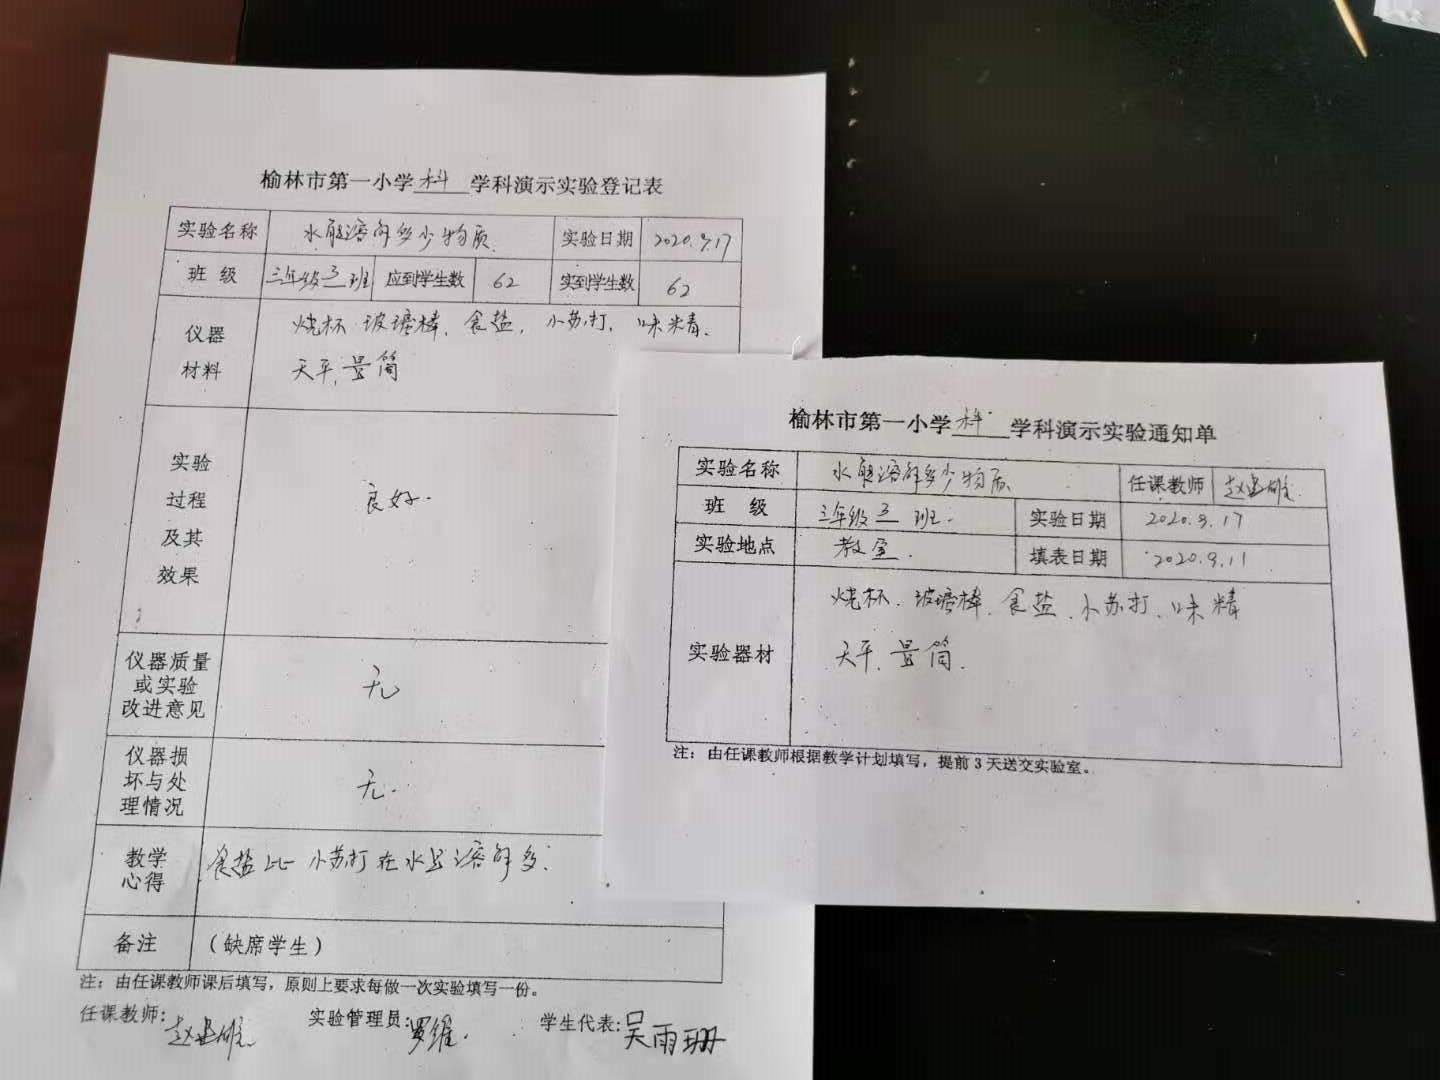 榆林市第一小学 科 学科演示实验登记表
实验名称 水能溶解多少物质 实验日期 2020.9.17
班 级 三年级3班 应到学生数 62 实到学生数 62
仪器 烧杯 玻璃棒、食盐，小苏打，味精、
材料 天平、量筒
实验
过程 良好.
及其
效果
仪器质量
或实验 无
改进意见
仪器损
坏与处 无.
理情况
教学 食盐比小苏打在水里溶解多.
心得
备注 （缺席学生）
注：由任课教师课后填写，原则上要求每做一次实验填写一份。
任课教师: 赵 实验管理员: 罗维. 学生代表: 吴雨珊
榆林市第一小学 科 学科演示实验通知单
实验名称 水能溶解多少物质 任课教师 赵
班 级 三年级3班. 实验日期 2020.9.17
实验地点 教室. 填表日期 2020.9.11
烧杯、玻璃棒、食盐、小苏打、味精
实验器材 天平、量筒.
注：由任课教师根据教学计划填写，提前3天送交实验室。